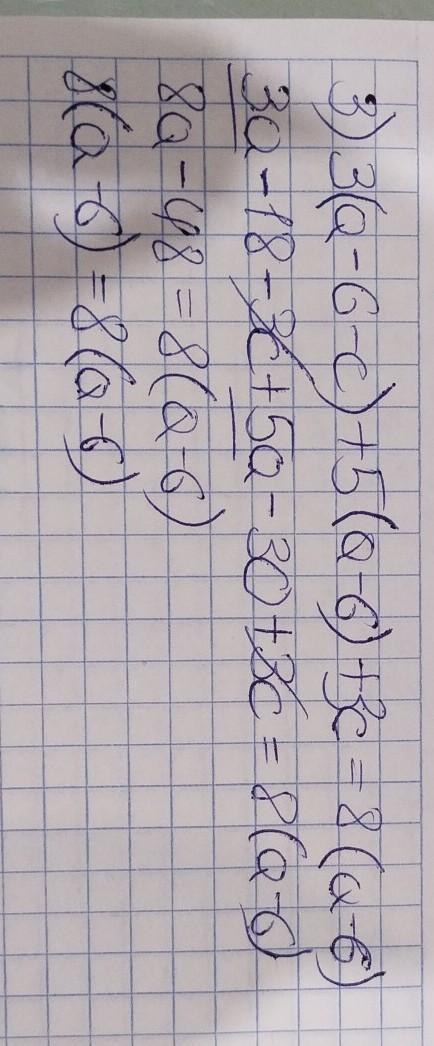 3) 3(a - 6 - c) + 5(a - 6) + 3c = 8(a - 6)
3a - 18 - 3c + 5a - 30 + 3c = 8(a - 6)
8a - 48 = 8(a - 6)
8(a - 6) = 8(a - 6)